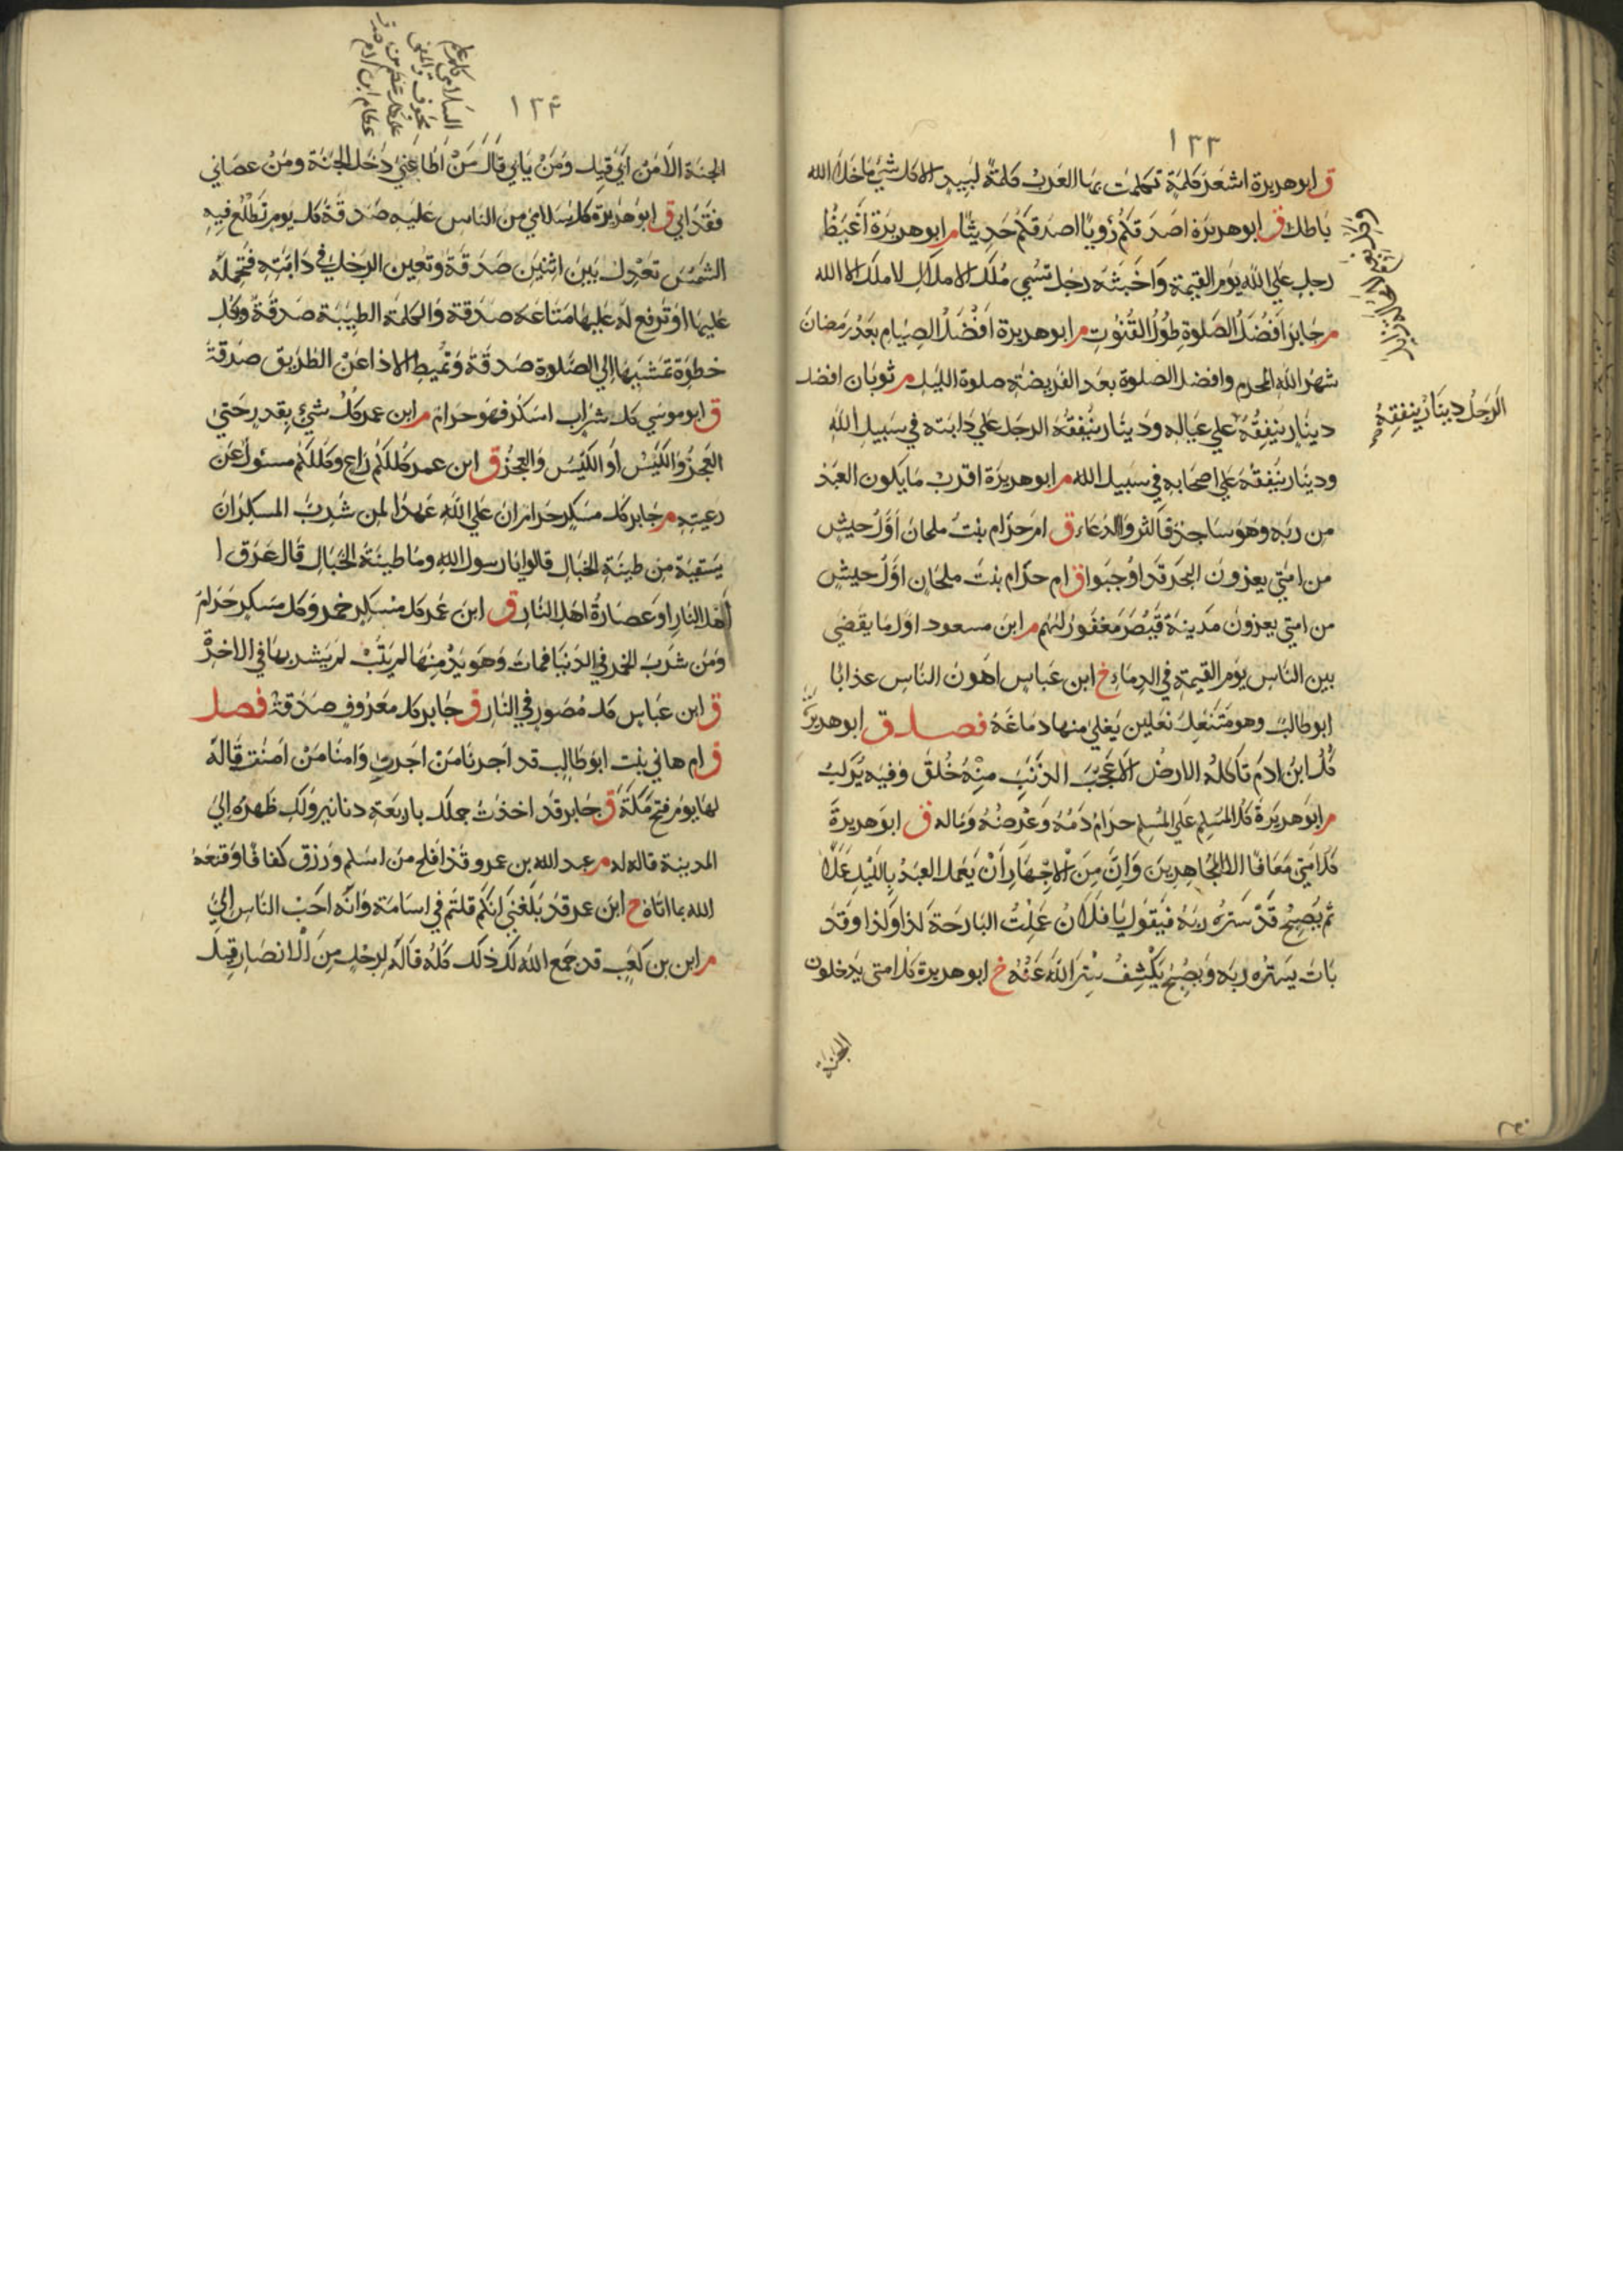 ١٣٣
ق ابو هريرة اشعر كلمة تكلمت بها العرب كلمة لبيد الا كل شئ ما خلا الله
باطل ق ابو هريرة اصدقكم رؤيا اصدقكم حديثا م ابو هريرة اغيظ
رجل علي الله يوم القيمة واخبثه رجل تسمي ملك الاملاك لا ملك الا الله
م جابر افضل الصلوة طول القنوت م ابو هريرة افضل الصيام بعد رمضان
شهر الله المحرم وافضل الصلوة بعد الفريضة صلوة الليل م ثوبان افضل
الرجل دينار ينفقه
دينار ينفقه علي عياله ودينار ينفقه الرجل علي دابته في سبيل الله
ودينار ينفقه علي اصحابه في سبيل الله م ابو هريرة اقرب ما يكون العبد
من ربه وهو ساجد فاكثروا الدعاء ق ام حرام بنت ملحان اول جيش
من امتي يغزون البحر قد اوجبوا ق ام حرام بنت ملحان اول جيش
من امتي يغزون مدينة قيصر مغفور لهم م ابن مسعود اول ما يقضي
بين الناس يوم القيمة في الدماء خ ابن عباس اهون الناس عذابا
ابو طالب وهو متنعل نعلين يغلي منها دماغه فصل ق ابو هريرة
كل ابن ادم تاكله الارض الا عجب الذنب منه خلق وفيه يركب
م ابو هريرة كل المسلم علي المسلم حرام دمه وعرضه وماله ق ابو هريرة
كل امتي معافا الا المجاهرين وان من الاجهار ان يعمل العبد بالليل عملا
ثم يصبح قد ستره ربه فيقول يا فلان عملت البارحة كذا وكذا وقد
بات يستره ربه ويصبح يكشف ستر الله عنه خ ابو هريرة كل امتي يدخلون
الجنة
١٣٤
السلامي
عظام ابن ادم
الجنة الا من ابي قيل ومن يابي قال من اطاعني دخل الجنة ومن عصاني
فقد ابي ق ابو هريرة كل سلامي من الناس عليه صدقة كل يوم تطلع فيه
الشمس تعدل بين اثنين صدقة وتعين الرجل في دابته فتحمله
عليها او ترفع له عليها متاعه صدقة والكلمة الطيبة صدقة وكل
خطوة تمشيها الي الصلوة صدقة وتميط الاذا عن الطريق صدقة
ق ابو موسي كل شراب اسكر فهو حرام م ابن عمر كل شئ بقدر حتي
العجز والكيس او الكيس والعجز ق ابن عمر كلكم راع وكلكم مسئول عن
رعيته م جابر كل مسكر حرام ان علي الله عهدا لمن شرب المسكر ان
يسقيه من طينة الخبال قالوا يا رسول الله وما طينة الخبال قال عرق ا
اهل النار او عصارة اهل النار ق ابن عمر كل مسكر خمر وكل مسكر حرام
ومن شرب الخمر في الدنيا فمات وهو يدمنها لم يتب لم يشربها في الاخرة
ق ابن عباس كل مصور في النار ق جابر كل معروف صدقة فصل
ق ام هاني بنت ابو طالب قد اجرنا من اجرت وامنا من امنت قاله
لها يوم فتح مكة ق جابر قد اخذت جملك باربعة دنانير ولك ظهره الي
المدينة قاله له م عبد الله بن عمرو قد افلح من اسلم ورزق كفافا وقنعه
الله بما اتاه خ ابن عمر قد بلغني انكم قلتم في اسامة وانه احب الناس الي
م ابن بن كعب قد جمع الله لك ذلك كله قاله لرجل من الانصار قيل